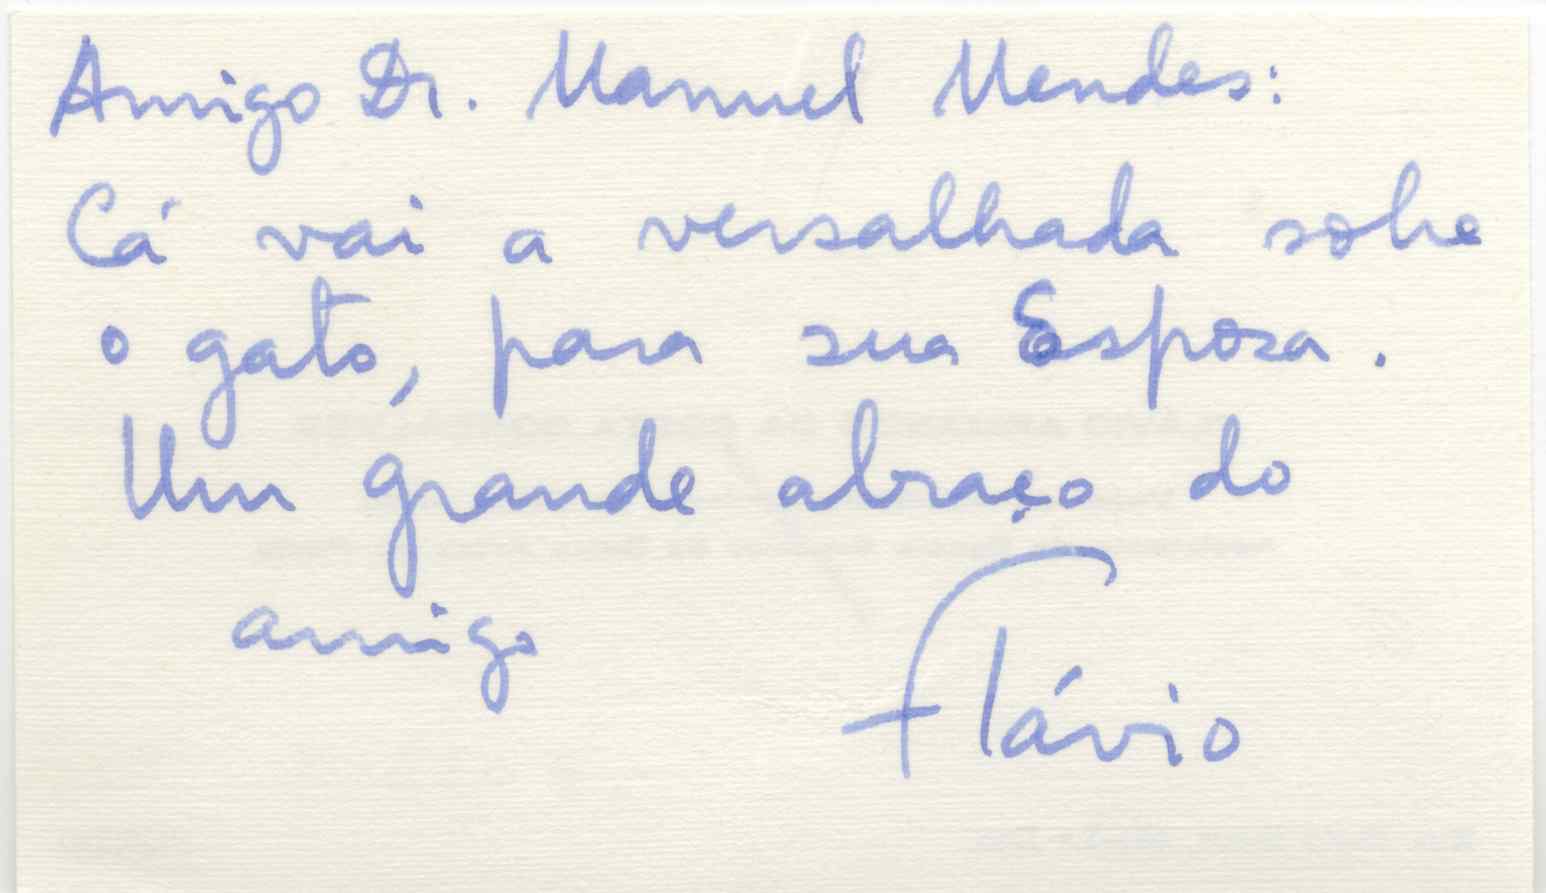 Amigo Dr. Manuel Mendes:
Cá vai a versalhada sobre
o gato, para sua Esposa.
Um grande abraço do
amigo
Flávio